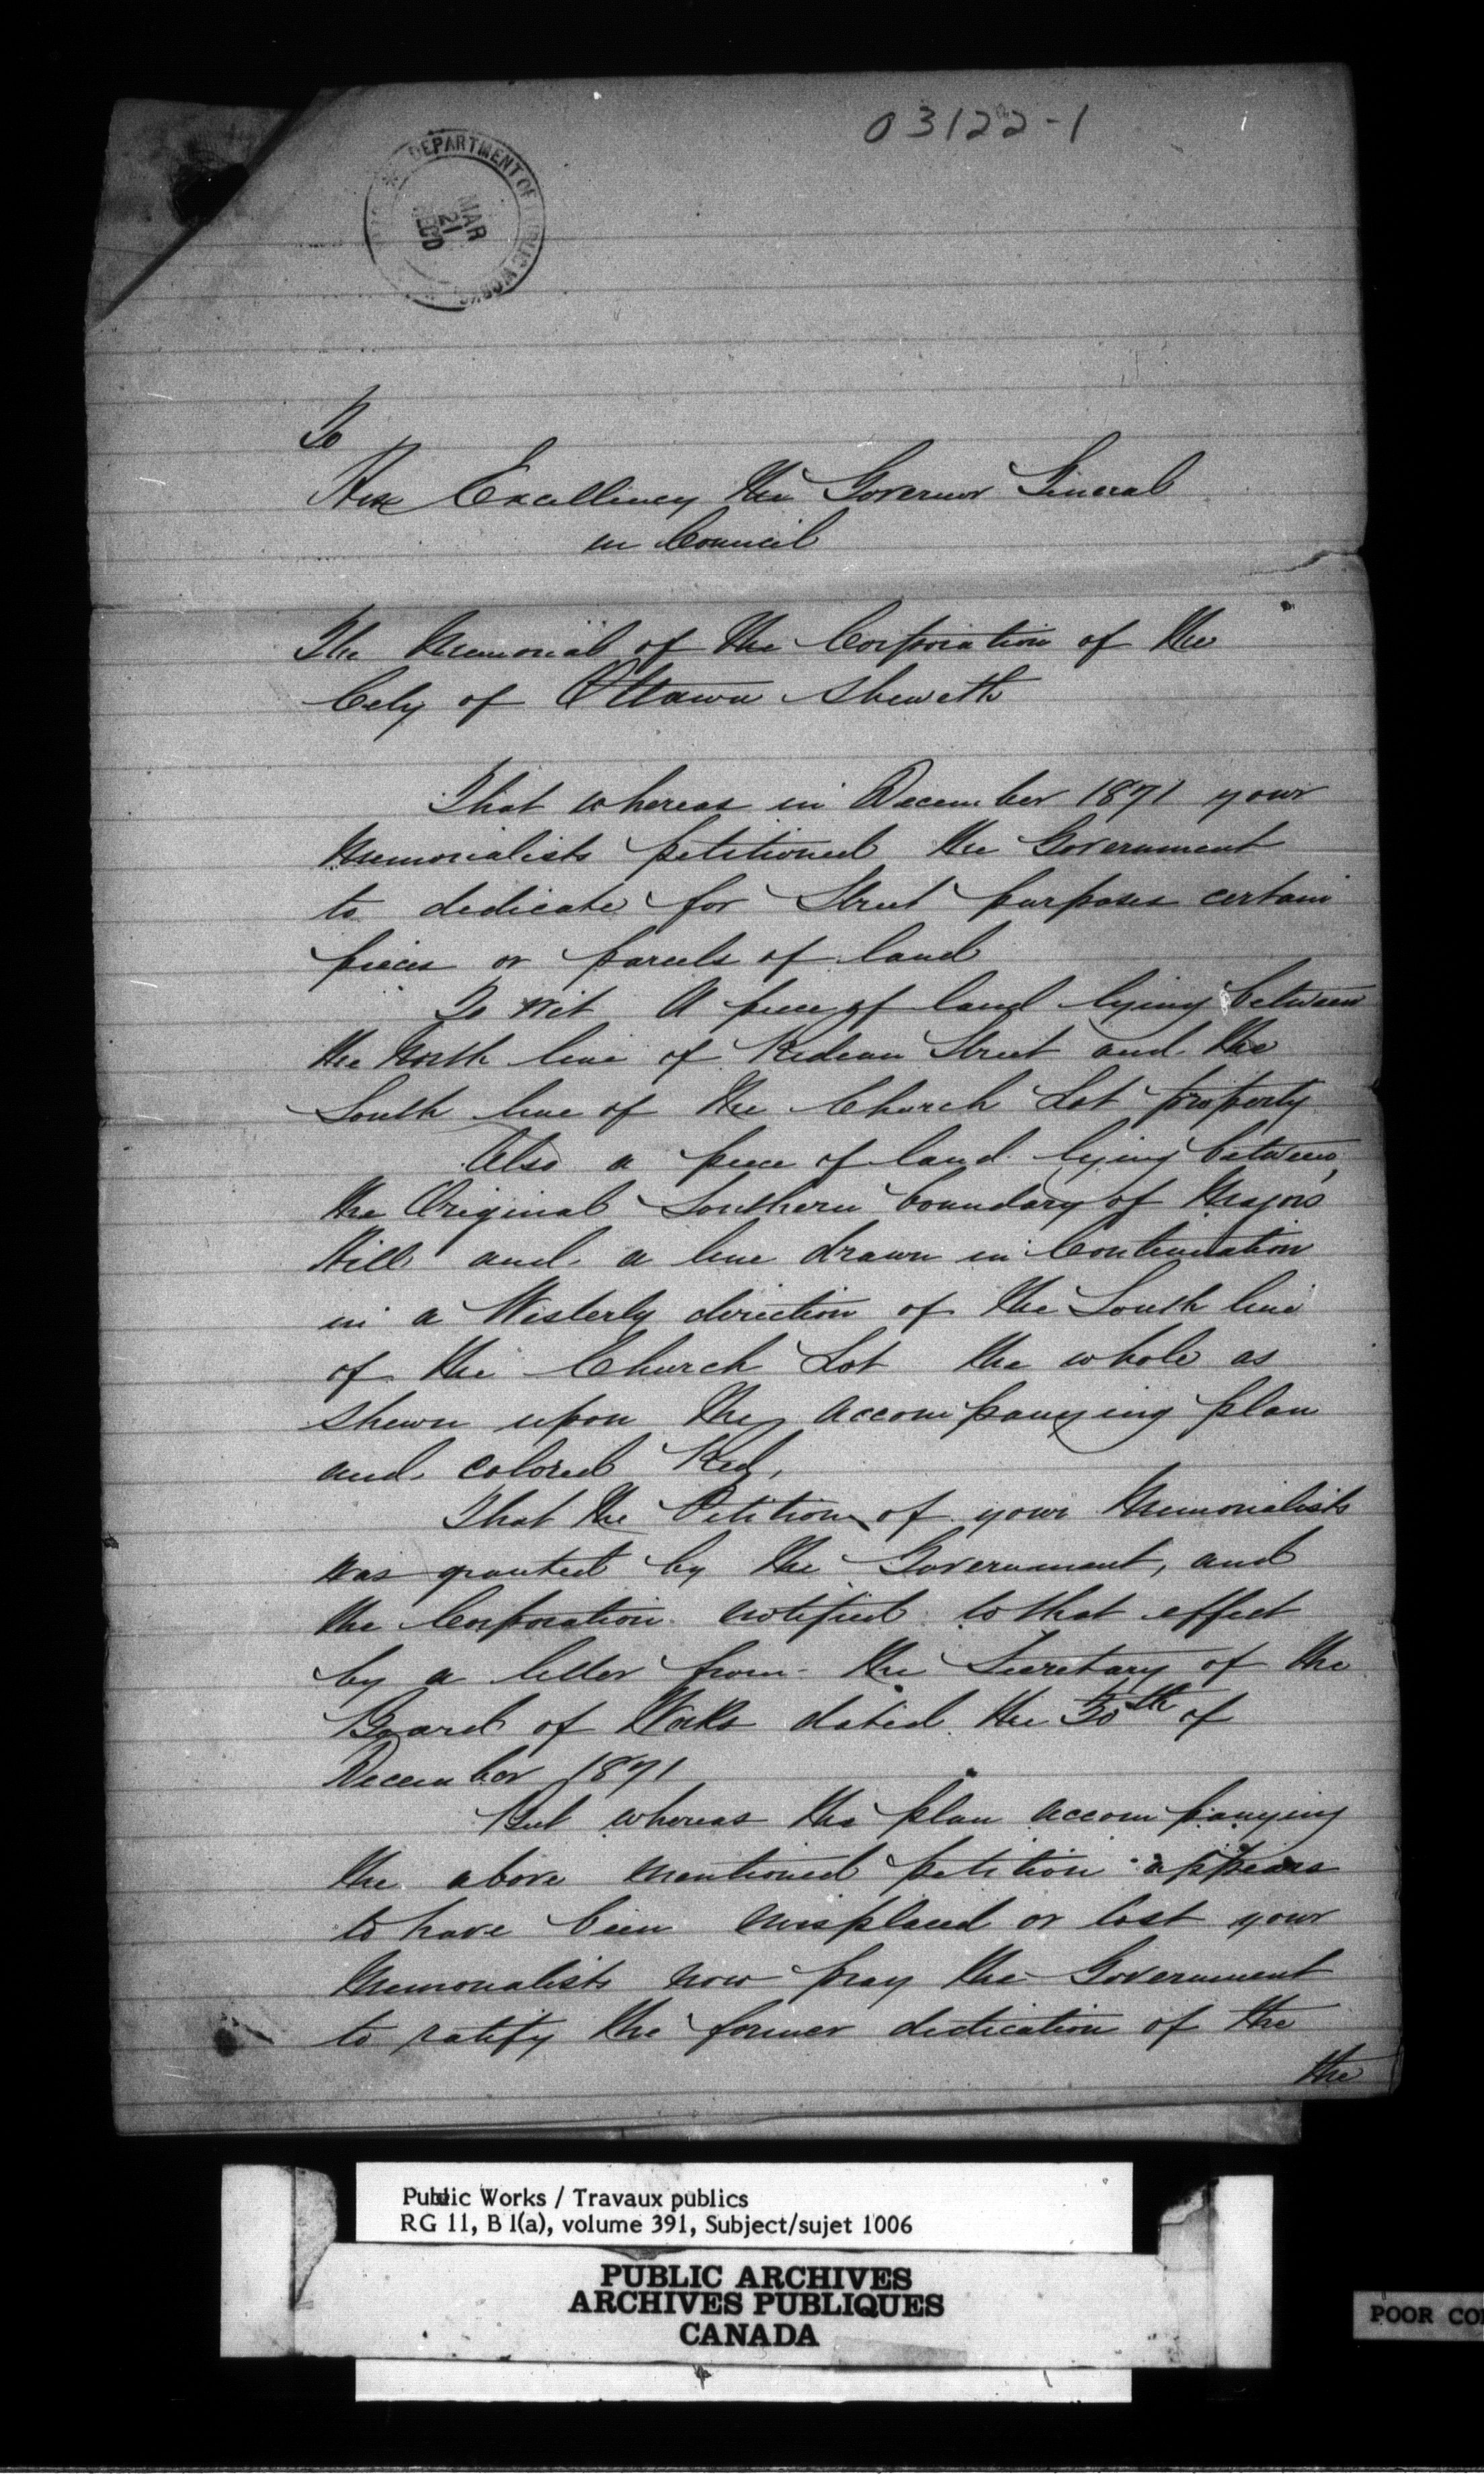 03122-1
DEPARTMENT OF PUBLIC WORKS
MAR
21
RECD
To
His Excellency the Governor General
in Council
The Memorial of the Corporation of the
City of Ottawa Sheweth
That whereas in December 1871 your
Memorialists petitioned the Government
to dedicate for Street purposes certain
pieces or parcels of land
To wit A piece of land lying between
the North line of Rideau Street and the
South line of the Church Lot property
Also a piece of land lying between
the Original Southern boundary of Majors
Hill and a line drawn in Continuation
in a Westerly direction of the South line
of the Church Lot the whole as
shewn upon the accompanying plan
and colored Red,
That the Petition of your Memorialists
was granted by the Government, and
the Corporation notified to that effect
by a letter from the Secretary of the
Board of Works dated the 30th of
December 1871
But whereas the plan accompanying
the above mentioned petition appears
to have been misplaced or lost your
Memorialists now pray the Government
to ratify the former dedication of the
the
Public Works / Travaux publics
RG 11, B 1(a), volume 391, Subject/sujet 1006
PUBLIC ARCHIVES
ARCHIVES PUBLIQUES
CANADA
POOR CO